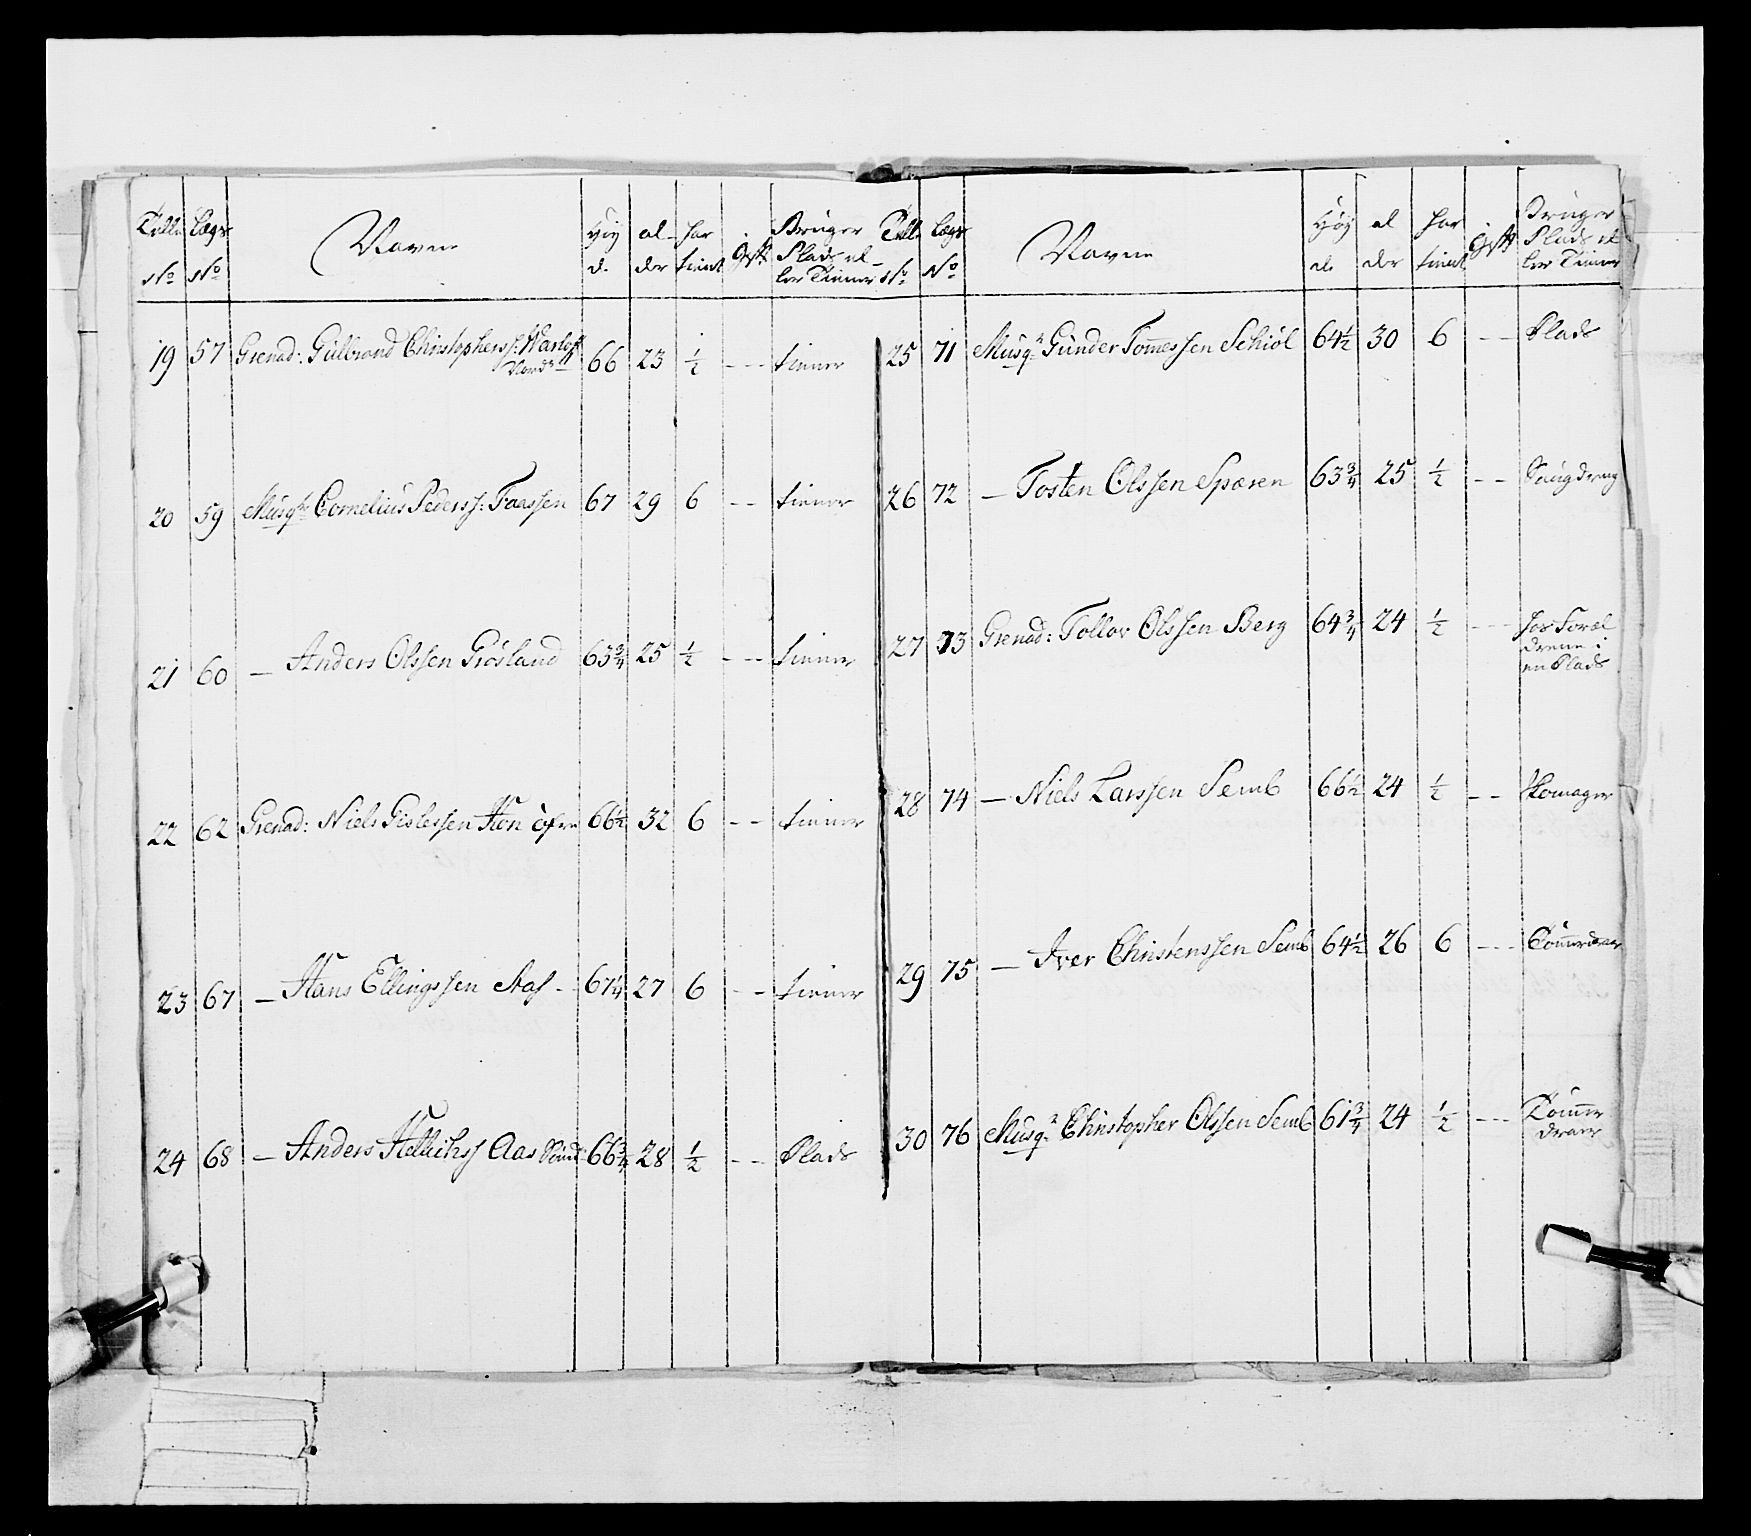 Tolle No | Lægs No | Navne | Høy d. | al- der | har tient | Gift | Bruger Plads el- ler Tiener
19 | 57 | Grenad: Gulbrand Christophers: Warloff Nord: | 66 | 23 | ½ | -- | tiener
20 | 59 | Musqr Cornelius Pederss: Faassen | 67 | 29 | 6 | -- | tiener
21 | 60 | — Anders Olssen Giøsland | 63¾ | 25 | ½ | -- | tiener
22 | 62 | Grenad: Niels Gislessen Høn øfre | 66½ | 32 | 6 | -- | tiener
23 | 67 | — Hans Ellingssen | 67¼ | 27 | 6 | -- | tiener
24 | 68 | — Anders Aas | 66¾ | 28 | ½ | -- | Plads
Tolle No | Lægs No | Navne | Høy d. | al der | har tient | Gift | Bruger Plads el ler Tiener
25 | 71 | Musqr Gunder Tommessen Schiøl | 64½ | 30 | 6 | -- | Plads
26 | 72 | — Tosten Olssen Sparen | 63¾ | 25 | ½ | -- | Saugdreng
27 | 73 | Grenad: Tollov Olssen Berg | 64¾ | 24 | ½ | --- | hos Foræl
drene i
en Plads
28 | 74 | — Niels Larssen Semb | 66½ | 24 | ½ | -- | Skomager
29 | 75 | — Iver Christenssen Semb | 64½ | 26 | 6 | --- | Tømmerdriver
30 | 76 | Musqr Christopher Olssen Semb | 61¾ | 24 | ½ | --- | Tømmer
driver